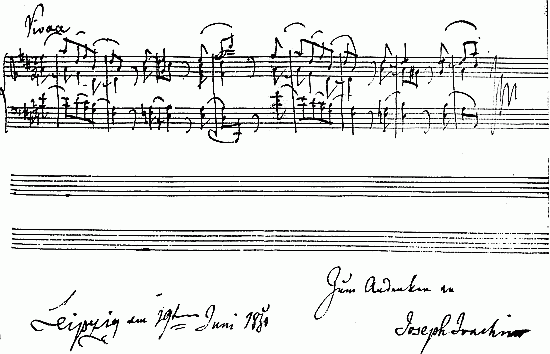 Vivace
Zum Andenken an
Leipzig am 19ten Juni
Joseph Joachim